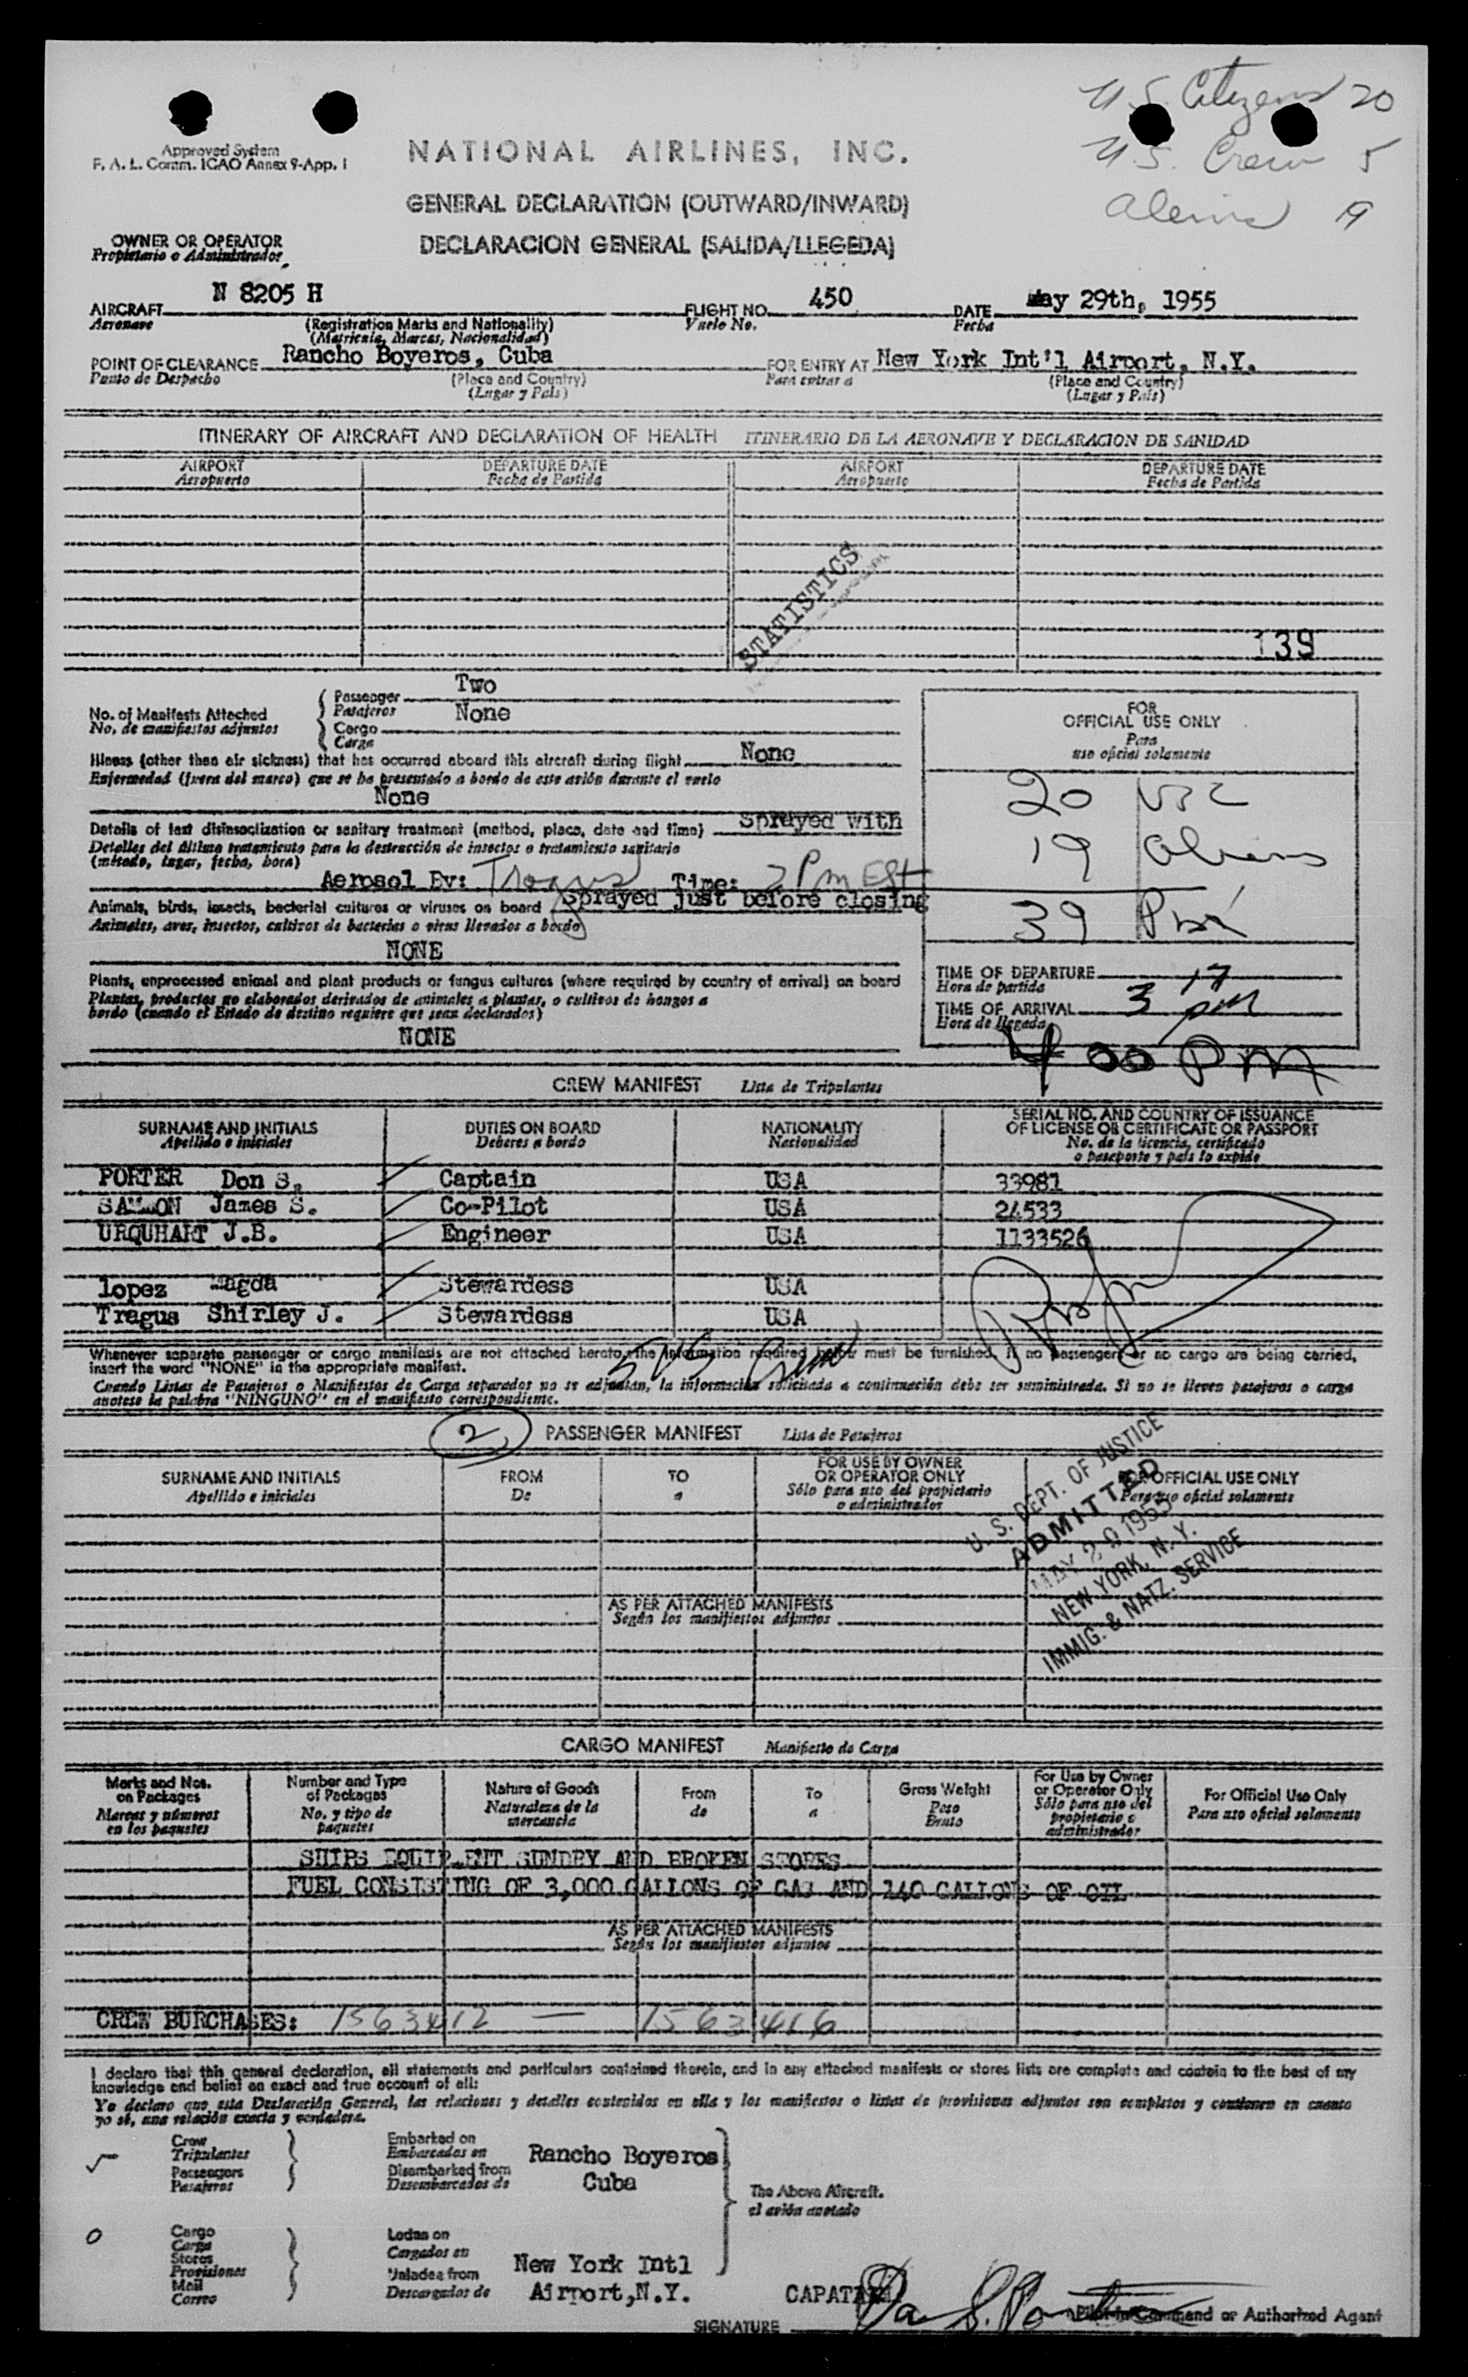 U.S. Citizens 20
U.S. Crew 5
Aliens 19
Approved System
F. A. L. Comm. ICAO Annex 9-App. 1
NATIONAL AIRLINES, INC.
GENERAL DECLARATION (OUTWARD/INWARD)
DECLARACION GENERAL (SALIDA/LLEGEDA)
OWNER OR OPERATOR
Propietario o Administrador
AIRCRAFT N 8205 H FLIGHT NO. 450 DATE May 29th, 1955
Aeronave (Registration Marks and Nationality) Vuelo No. Fecha
(Matricula, Marcas, Nacionalidad)
POINT OF CLEARANCE Rancho Boyeros, Cuba FOR ENTRY AT New York Int'l Airport, N.Y.
Punto de Despacho (Place and Country) Para entrar a (Place and Country)
(Lugar y País) (Lugar y País)
ITINERARY OF AIRCRAFT AND DECLARATION OF HEALTH ITINERARIO DE LA AERONAVE Y DECLARACION DE SANIDAD
AIRPORT DEPARTURE DATE AIRPORT DEPARTURE DATE
Aeropuerto Fecha de Partida Aeropuerto Fecha de Partida
STATISTICS
139
No. of Manifests Attached
No. de manifiestos adjuntos
Passenger Two
Pasajeros
Cargo None
Carga
Illness (other than air sickness) that has occurred aboard this aircraft during flight None
Enfermedad (fuera del mareo) que se ha presentado a bordo de este avión durante el vuelo
None
Details of last disinsectization or sanitary treatment (method, place, date and time) Sprayed with
Detalles del último tratamiento para la destrucción de insectos o tratamiento sanitario
(método, lugar, fecha, hora)
Aerosol By: Tragus Time: 2 Pm Est
Sprayed just before closing
Animals, birds, insects, bacterial cultures or viruses on board
Animales, aves, insectos, cultivos de bacterias o virus llevados a bordo
NONE
Plants, unprocessed animal and plant products or fungus cultures (where required by country of arrival) on board
Plantas, productos no elaborados derivados de animales a plantas, o cultivos de hongos a
bordo (cuando el Estado de destino requiere que sean declarados)
NONE
FOR
OFFICIAL USE ONLY
Para
uso oficial solamente
20 USC
19 Aliens
39
TIME OF DEPARTURE
Hora de partida
17
TIME OF ARRIVAL 3 pm
Hora de llegada
4 00 PM
CREW MANIFEST Lista de Tripulantes
SURNAME AND INITIALS DUTIES ON BOARD NATIONALITY SERIAL NO. AND COUNTRY OF ISSUANCE
OF LICENSE OR CERTIFICATE OR PASSPORT
Apellido e iniciales Deberes a bordo Nacionalidad No. de la licencia, certificado
o pasaporte y país lo expide
PORTER Don S. Captain USA 33981
SALMON James S. Co-Pilot USA 24533
URQUHART J.B. Engineer USA 1133526
lopez Magda Stewardess USA
Tragus Shirley J. Stewardess USA
5 USC Crew
Whenever separate passenger or cargo manifests are not attached hereto, the information required below must be furnished. If no passengers or no cargo are being carried,
insert the word "NONE" in the appropriate manifest.
Cuando Listas de Pasajeros o Manifiestos de Carga separados no se adjuntan, la información solicitada a continuación debe ser suministrada. Si no se lleven pasajeros o carga
anotese la palabra "NINGUNO" en el manifiesto correspondiente.
2 PASSENGER MANIFEST Lista de Pasajeros
SURNAME AND INITIALS FROM TO FOR USE BY OWNER
OR OPERATOR ONLY FOR OFFICIAL USE ONLY
Apellido e iniciales De a Sólo para uso del propietario
o administrador Para uso oficial solamente
U. S. DEPT. OF JUSTICE
ADMITTED
MAY 29 1955
NEW YORK, N. Y.
IMMIG. & NATZ. SERVICE
AS PER ATTACHED MANIFESTS
Según los manifiestos adjuntos
CARGO MANIFEST Manifiesto de Carga
Marks and Nos.
on Packages
Marcas y números
en los paquetes
Number and Type
of Packages
No. y tipo de
paquetes
Nature of Goods
Naturaleza de la
mercancía
From
de
To
a
Gross Weight
Peso
Bruto
For Use by Owner
or Operator Only
Sólo para uso del
propietario o
administrador
For Official Use Only
Para uso oficial solamente
SHIPS EQUIPMENT SUNDRY AND BROKEN STORES
FUEL CONSISTING OF 3,000 GALLONS OF GAS AND 140 GALLONS OF OIL
AS PER ATTACHED MANIFESTS
Según los manifiestos adjuntos
CREW BURCHASES: 1563412 — 1563416
I declare that this general declaration, all statements and particulars contained therein, and in any attached manifests or stores lists are complete and contain to the best of my
knowledge and belief an exact and true account of all:
Yo declaro que esta Declaración General, las relaciones y detalles contenidos en ella y los manifiestos o listas de provisiones adjuntos son completos y contienen en cuanto
yo sé, una relación exacta y verdadera.
Crew
Tripulantes
Passengers
Pasajeros
Embarked on
Embarcados en
Disembarked from
Desembarcados de
Rancho Boyeros
Cuba
The Above Aircraft.
el avión anotado
O
Cargo
Carga
Stores
Provisiones
Mail
Correo
Laden on
Cargados en
Unladen from
Descargados de
New York Intl
Airport, N.Y.
CAPATAIN Don S. Porter
SIGNATURE Pilot in Command or Authorized Agent